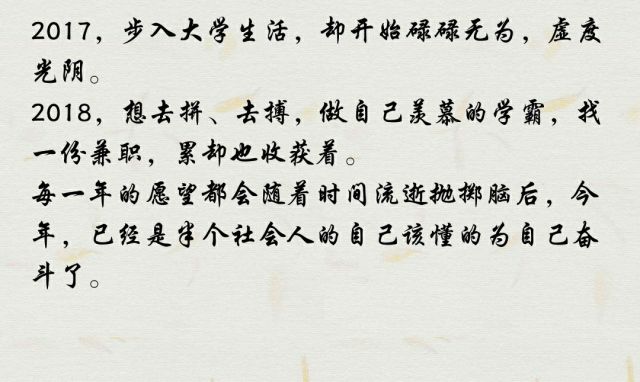 2017，步入大学生活，却开始碌碌无为，虚度
光阴。
2018，想去拼、去搏，做自己羡慕的学霸，找
一份兼职，累却也收获着。
每一年的愿望都会随着时间流逝抛掷脑后，今
年，已经是半个社会人的自己该懂的为自己奋
斗了。